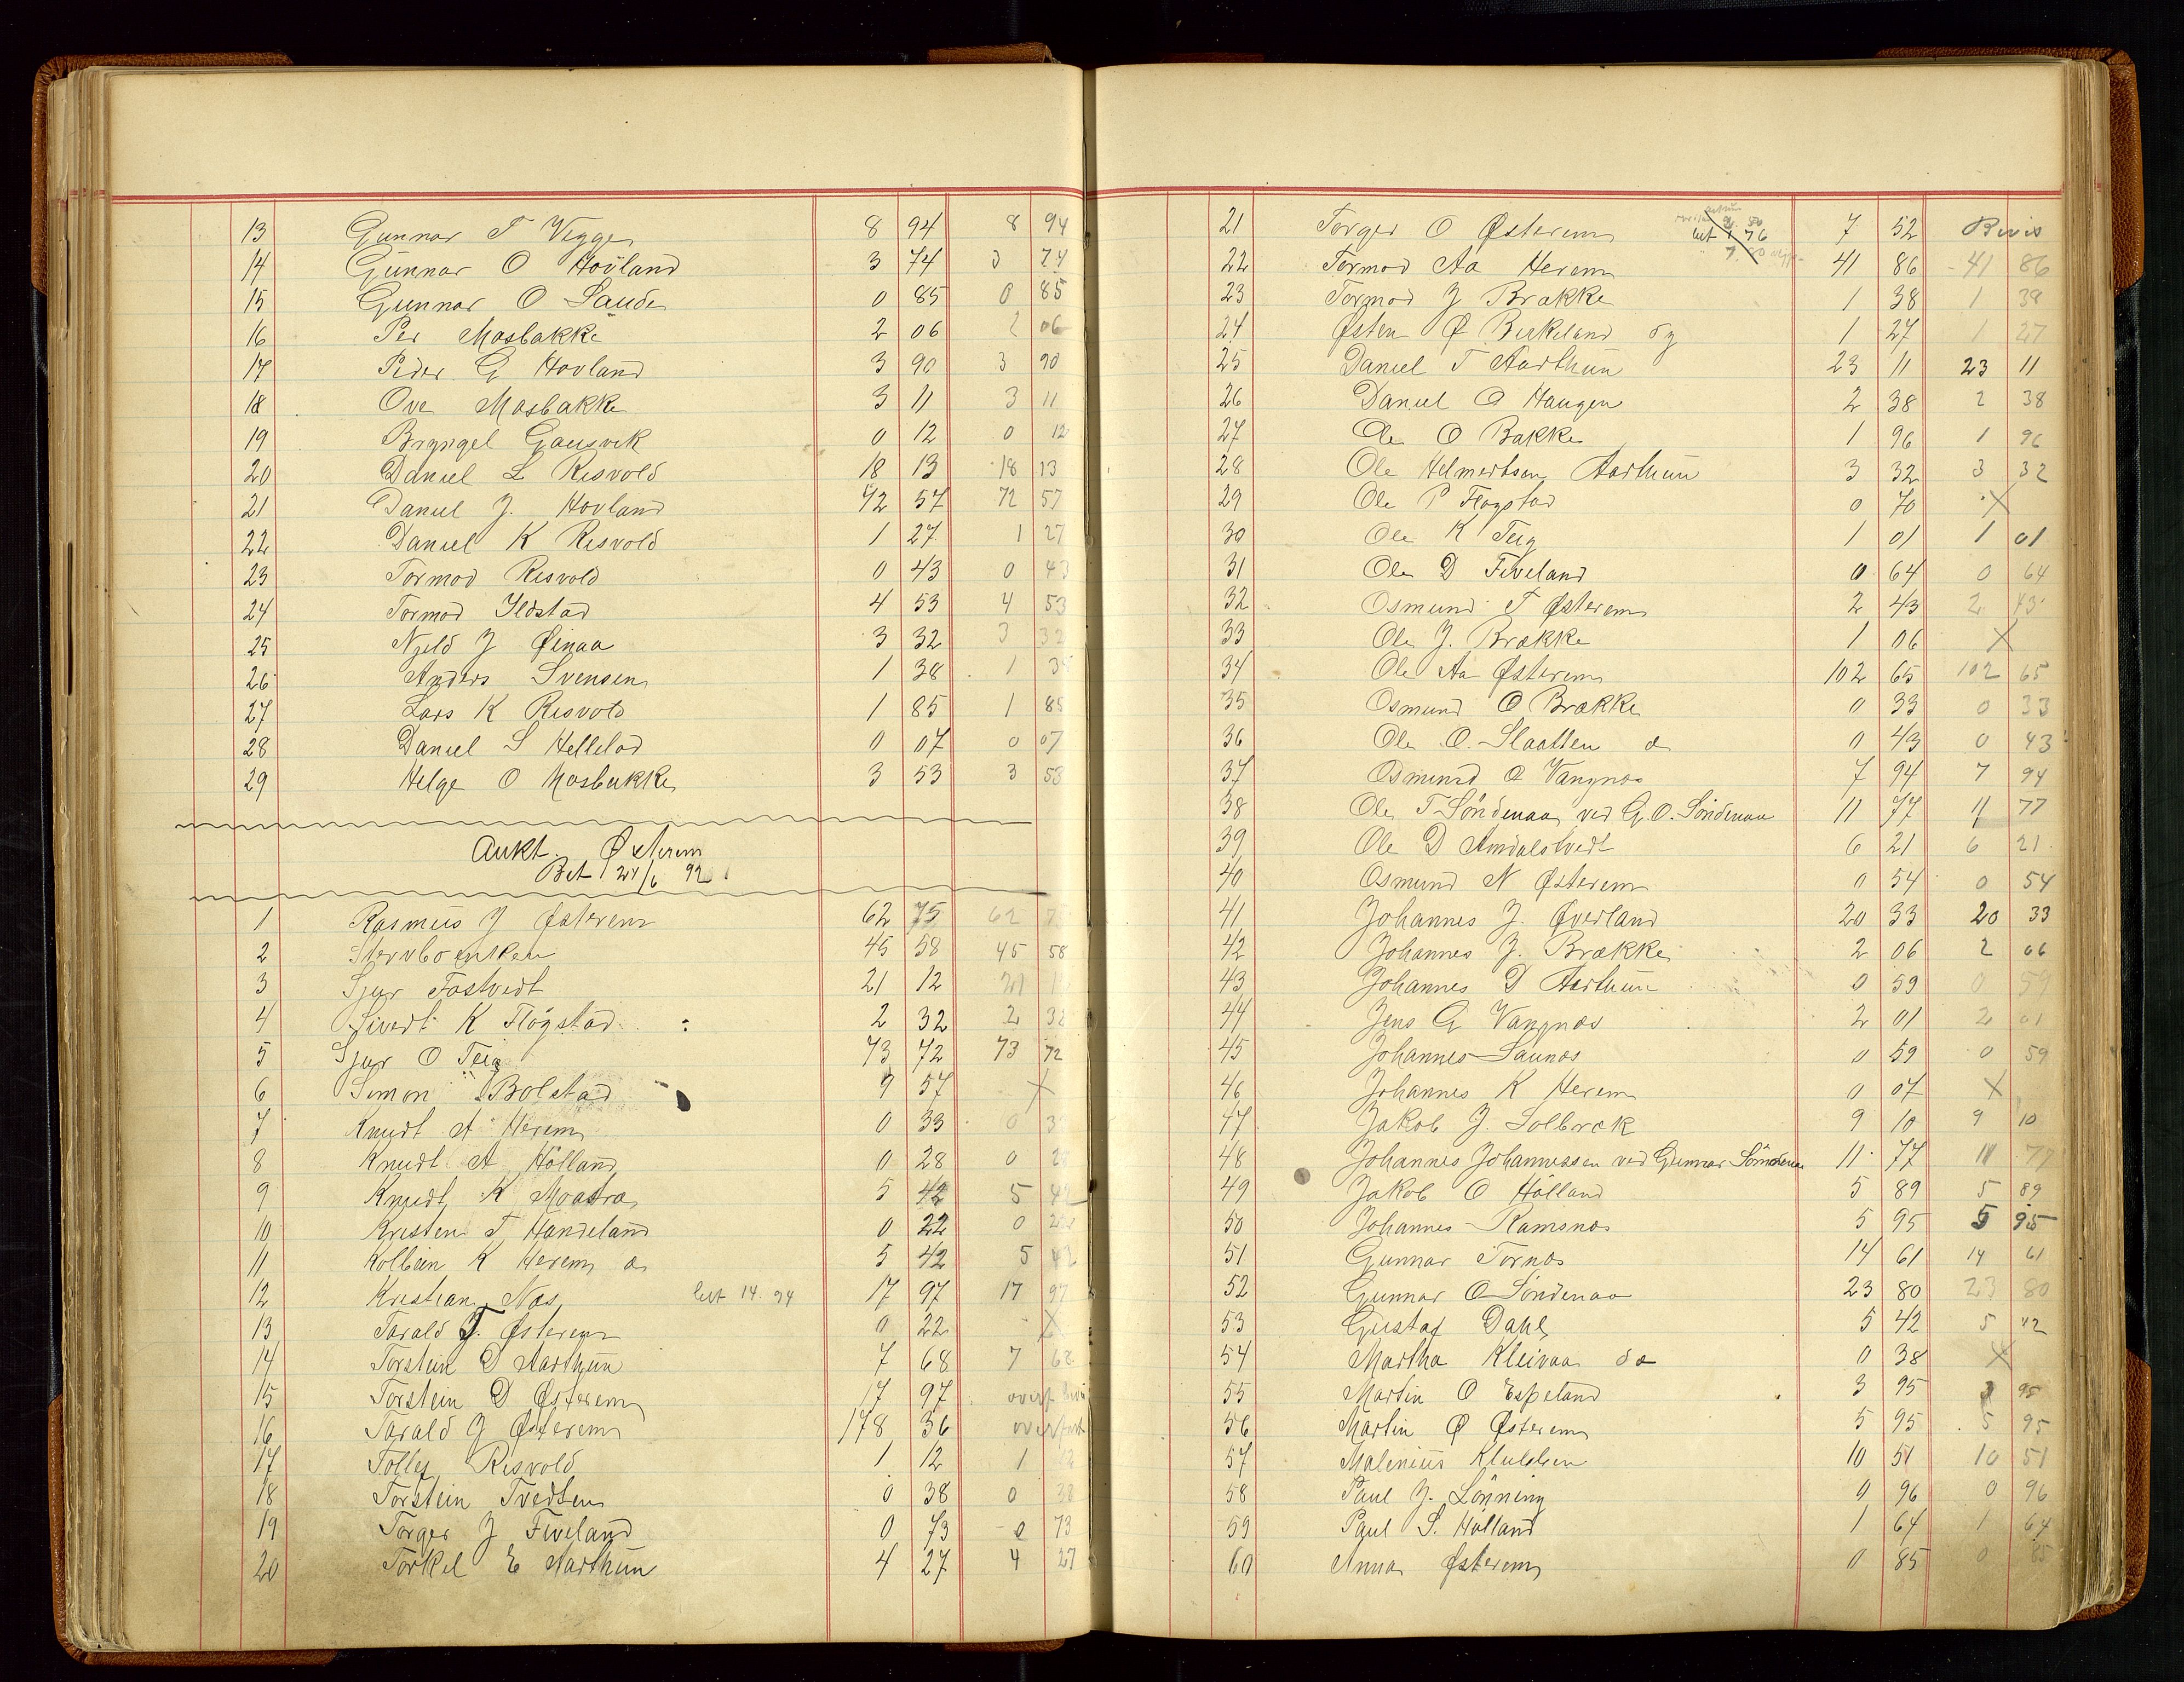 13 Gunnar T Vegge 8 94 8 94
14 Gunnar O Hovland 3 74 3 74
15 Gunnar O Saude 0 85 0 85
16 Per Mosbakke 2 06 2 06
17 Peder G Hovland 3 90 3 90
18 Ove Mosbakke 3 11 3 11
19 Gausvik 0 12 0 12
20 Daniel L Risvold 18 13 18 13
21 Daniel J. Hovland 72 57 72 57
22 Daniel K Risvold 1 27 1 27
23 Tormod Risvold 0 43 0 43
24 Tormod Ilstad 4 53 4 53
25 Njeld J Øinaa 3 32 3 32
26 Anders Svensen 1 38 1 38
27 Lars K Risvold 1 85 1 85
28 Daniel S Hellelad 0 07 0 07
29 Helge O Mosbakke 3 53 3 53
Aukt. Østerem
Bet 24/6 92
1 Rasmus J Østerem 62 75 62 75
2 Stervboenken 45 58 45 58
3 Sjur Fostvedt 21 12 21 12
4 Sivert K Flögstad 2 32 2 32
5 Sjur O Teig 73 72 73 72
6 Simon Bolstad 9 57 X
7 Knudt A Herem 0 33 0 33
8 Knudt A Hölland 0 28 0 28
9 Knudt K Moatra 5 42 5 42
10 Kristen T Handeland 0 22 0 22
11 Kolbein K Herem 5 42 5 42
12 Kristian Næs bet 14. 94 17 97 17 97
13 Tarald T. Østerem 0 22 X
14 Torstein D Aarthun 7 68 7 68
15 Torstein D Østerem 17 97 overf
16 Tarald J Østerem 178 36 overført
17 Tolly Risvold 1 12 1 12
18 Torstein Tvedten 0 38 0 38
19 Torger J Fiveland 0 73 0 73
20 Torkel E Aarthun 4 27 4 27
21 Torger O Østerem 7 52 Bevis
22 Tormod Aa Herem 41 86 41 86
23 Tormod J Brække 1 38 1 38
24 Østen Ø Birkeland og 1 27 1 27
25 Daniel T Aarthun 23 11 23 11
26 Daniel O Haugen 2 38 2 38
27 Ole O Bakke 1 96 1 96
28 Ole Helmertsen Aarthun 3 32 3 32
29 Ole P Flogstad 0 70 X
30 Ole K Teig 1 01 1 01
31 Ole D Fiveland 0 64 0 64
32 Osmund T Østerem 2 43 2 43
33 Ole J. Brække 1 06 X
34 Ole Aa Østerem 102 65 102 65
35 Osmund O Brække 0 33 0 33
36 Ole O. Slaatten 0 43 0 43
37 Osmund O Vangnæs 7 94 7 94
38 Ole T Söndenaa ved G. O. Söndenaa 11 77 11 77
39 Ole D Amdalstvedt 6 21 6 21
40 Osmund N Østerem 0 54 0 54
41 Johannes J. Øverland 20 33 20 33
42 Johannes J. Brække 2 06 2 06
43 Johannes D Aarthun 0 59 0 59
44 Jens G Vangnæs 2 01 2 01
45 Johannes Saunæs 0 59 0 59
46 Johannes K Herem 0 07 X
47 Jakob J. Solbræk 9 10 9 10
48 Johannes Johannessen ved Gunnar Söndenaa 11 77 11 77
49 Jakob O Hölland 5 89 5 89
50 Johannes Ramsnæs 5 95 5 95
51 Gunnar Tornæs 14 61 14 61
52 Gunnar O Söndenaa 23 80 23 80
53 Gustaf Dahl 5 42 5 42
54 Martha Kleivaa 0 38 X
55 Martin O Espeland 3 95 3 95
56 Martin Ø Østerem 5 95 5 95
57 Malenius 10 51 10 51
58 Paul J. Lönning 0 96 0 96
59 Paul S. Hölland 1 64 1 64
60 Anna Østerem 0 85 0 85